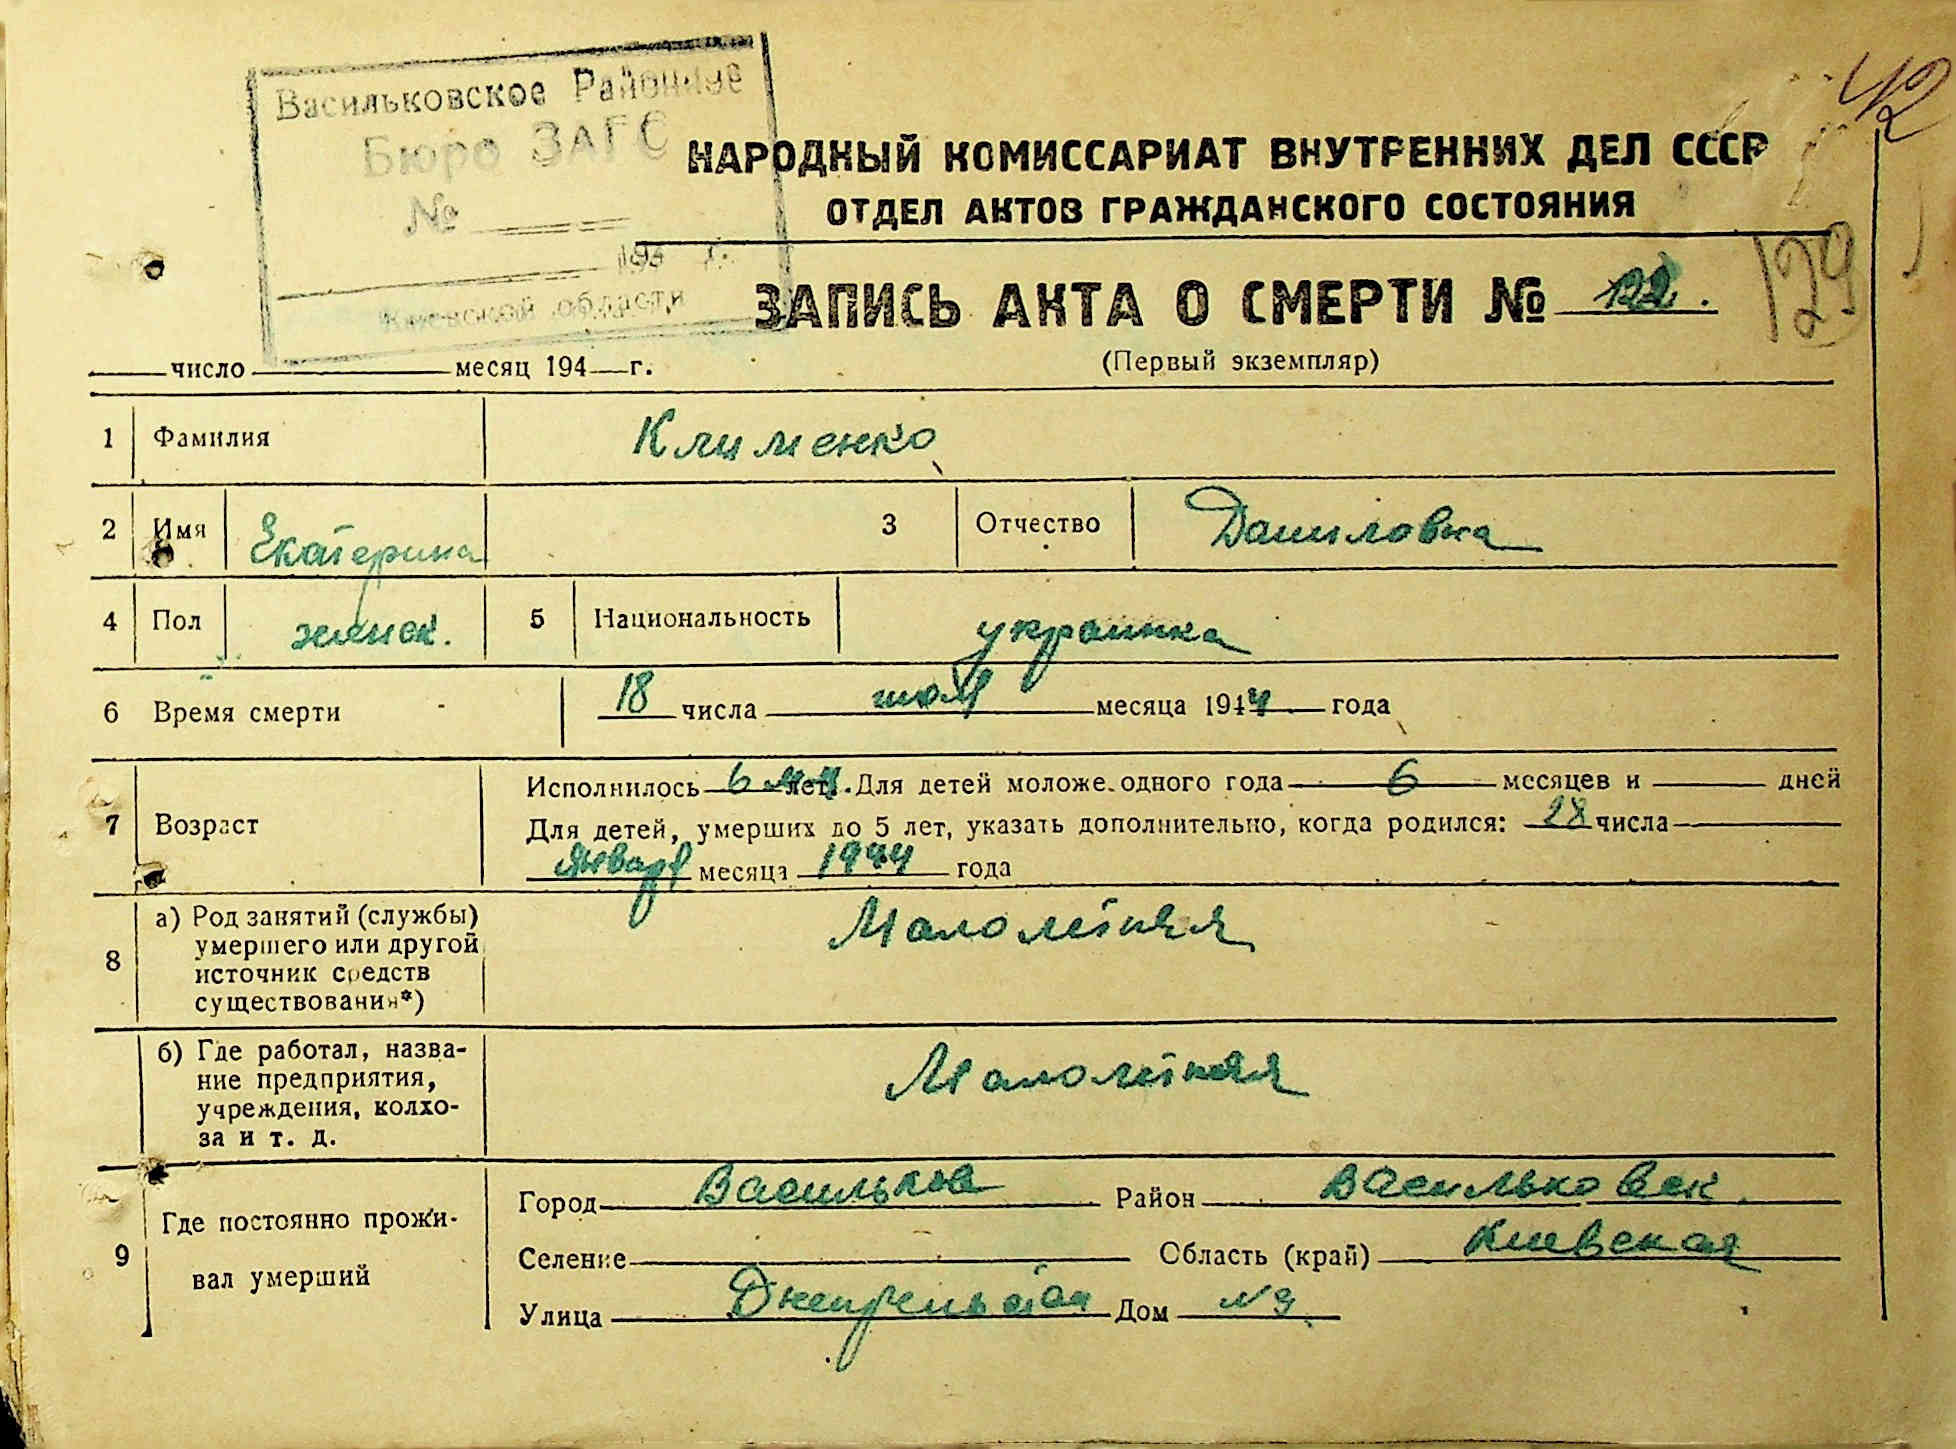 Васильковское Районное
Бюро ЗАГС
№
194 г.
Киевской области
42
НАРОДНЫЙ КОМИССАРИАТ ВНУТРЕННИХ ДЕЛ СССР
ОТДЕЛ АКТОВ ГРАЖДАНСКОГО СОСТОЯНИЯ
129
ЗАПИСЬ АКТА О СМЕРТИ № 122.
число месяц 194 г.
(Первый экземпляр)
1 Фамилия Клименко
2 Имя Екатерина 3 Отчество Даниловна
4 Пол женск. 5 Национальность украинка
6 Время смерти 18 числа июля месяца 1944 года
7 Возраст
Исполнилось 6 лет. Для детей моложе одного года 6 месяцев и дней
Для детей, умерших до 5 лет, указать дополнительно, когда родился: 28 числа
января месяца 1944 года
8 а) Род занятий (службы)
умершего или другой
источник средств
существования*)
Малолетняя
б) Где работал, назва-
ние предприятия,
учреждения, колхо-
за и т. д.
Малолетняя
9 Где постоянно прожи-
вал умерший
Город Васильков Район Васильковск.
Селение Область (край) Киевская
Улица Дом №9